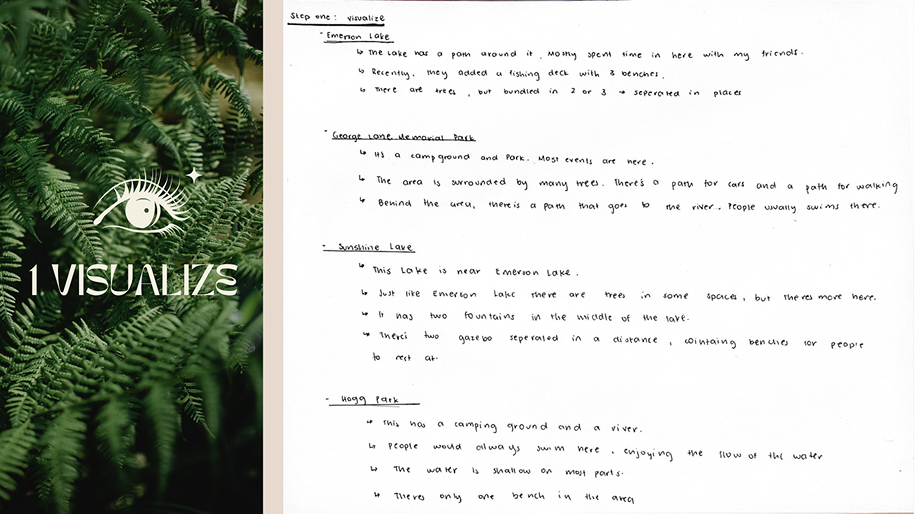 1 VISUALIZE
Step one : visualize
- Emerson Lake
↳ The Lake has a path around it . Mostly spent time in here with my friends.
↳ Recently, they added a fishing deck with 3 benches.
↳ There are trees , but bundled in 2 or 3 → seperated in places
- George Lane Memorial Park
↳ It's a campground and park. Most events are here.
↳ The area is surrounded by many trees. There's a path for cars and a path for walking
↳ Behind the area, there is a path that goes to the river. People usually swims there.
- Sunshine Lake
↳ This Lake is near Emerson Lake.
↳ Just like Emerson Lake there are trees in some spaces, but theres more here.
↳ It has two fountains in the middle of the lake.
↳ There's two gazebo seperated in a distance , containing benches for people
to rest at.
- Hogg Park
↳ This has a camping ground and a river.
↳ People would always swim here , enjoying the flow of the water
↳ The water is shallow on most parts.
↳ Theres only one bench in the area